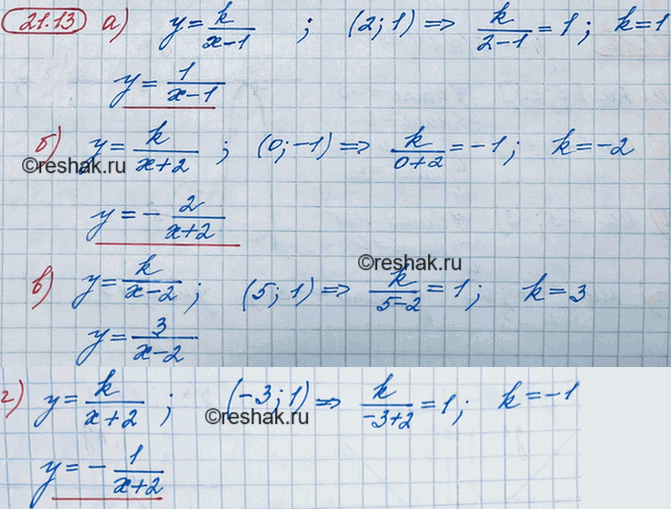 21.13 а) y = k/(x-1) ; (2; 1) => k/(2-1) = 1; k=1
y = 1/(x-1)
б) y = k/(x+2) ; (0; -1) => k/(0+2) = -1; k=-2
©reshak.ru
y = - 2/(x+2)
©reshak.ru
в) y = k/(x-2) ; (5; 1) => k/(5-2) = 1; k=3
y = 3/(x-2)
г) y = k/(x+2) ; (-3; 1) => k/(-3+2) = 1; k=-1
©reshak.ru
y = - 1/(x+2)